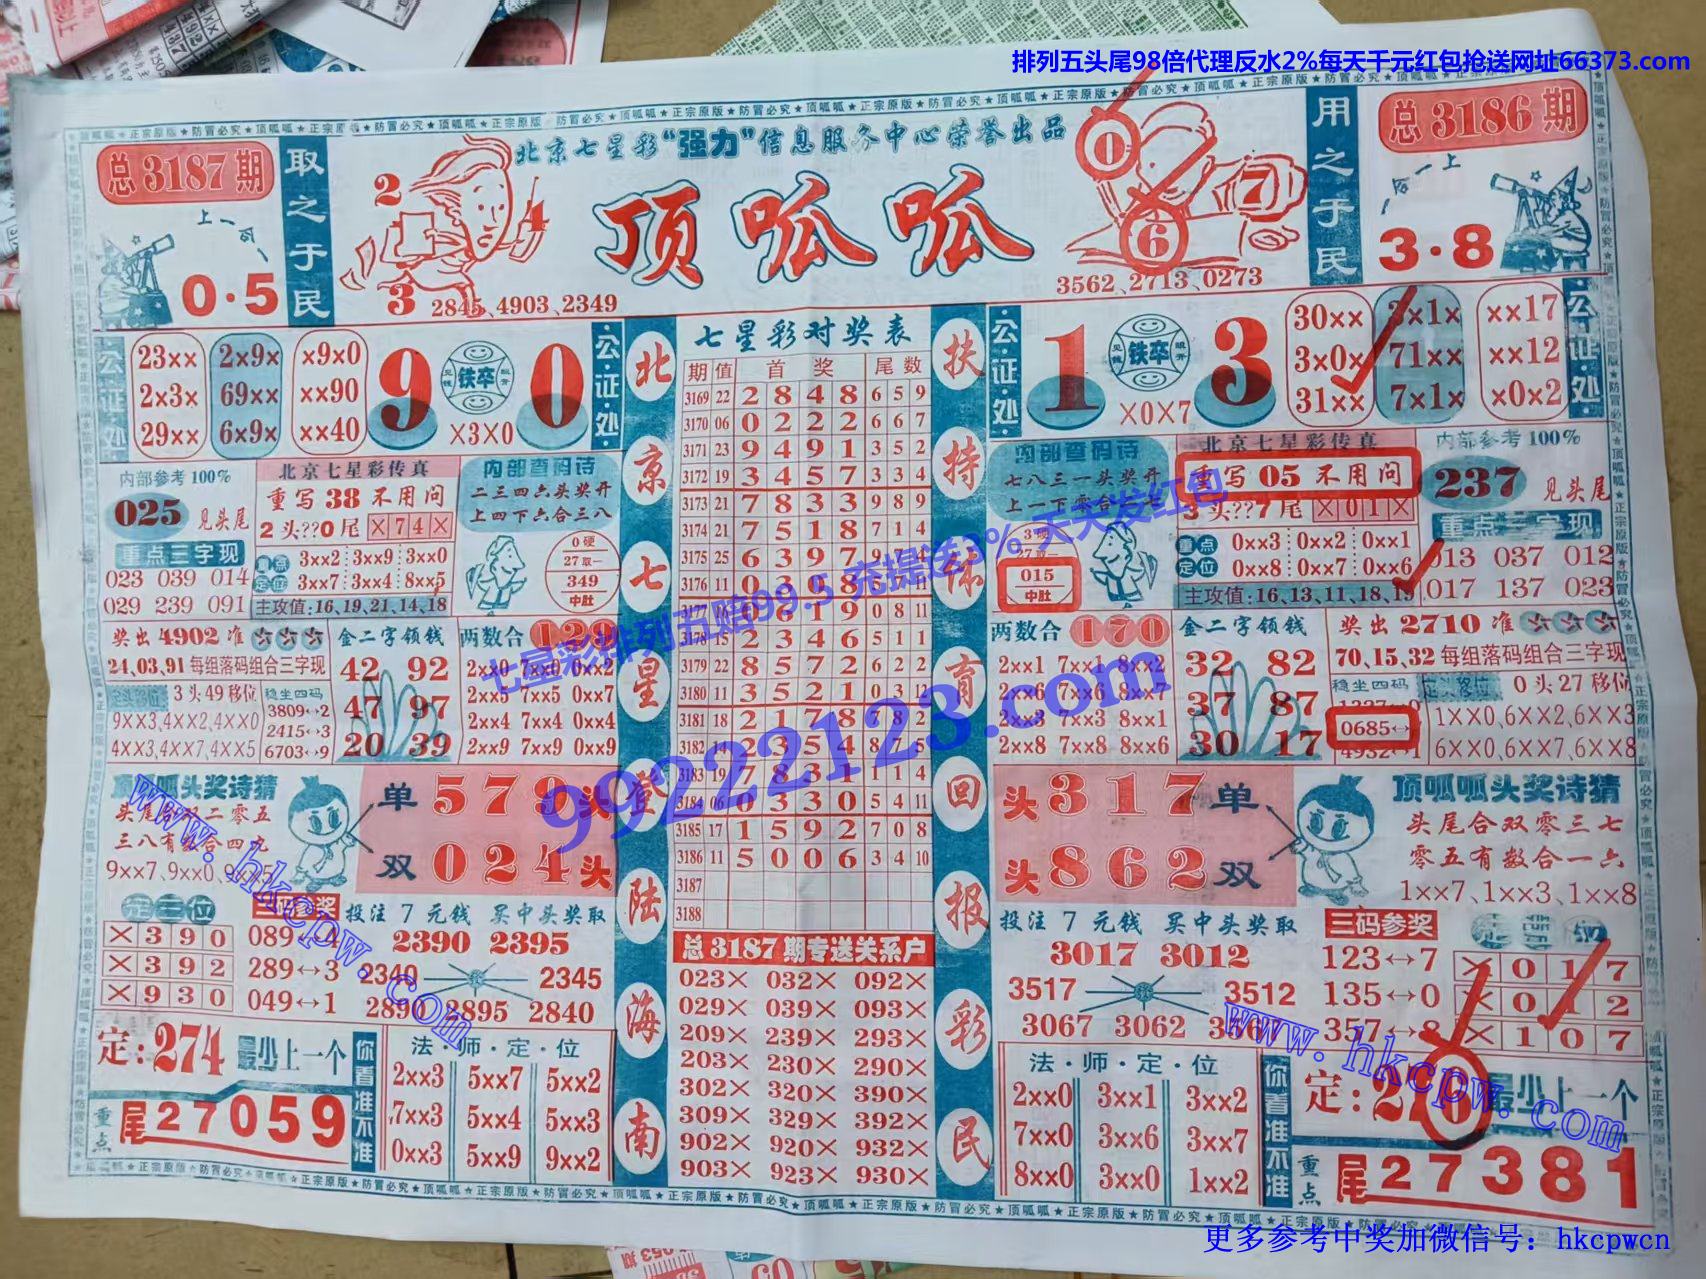 排列五头尾98倍代理反水2%每天千元红包抢送网址66373.com
总3187期
取之于民
0·5
北京七星彩“强力”信息服务中心荣誉出品
顶呱呱
2
4
3
2845、4903、2349
0
7
6
3562、2713、0273
用之于民
总3186期
3·8
公证处
23×× 2×9× ×9×0
2×3× 69×× ××90
29×× 6×9× ××40
9 铁卒 0
×3×0
公证处
内部参考100%
025 见头尾
重点三字现
023 039 014
029 239 091
北京七星彩传真
重写38不用问
2头??0尾 ×74×
重点定位
3××2 3××9 3××0
3××7 3××4 8××5
主攻值:16,19,21,14,18
内部查码诗
二三四六头奖开
上四下六合三八
0硬
27取一
349
中肚
奖出4902准
24,03,91每组落码组合三字现
3头49移位
9××3,4××2,4××0
4××3,4××7,4××5
稳坐四码
3809↔2
2415↔3
6703↔9
金二字领钱
42 92
47 97
20 39
两数合 129
2××0 7××0 0××2
2××5 7××5 0××7
2××4 7××4 0××4
2××9 7××9 0××9
顶呱呱头奖诗猜
三八有数合四九
9××7、9××0、9××5
单 579头
双 024头
×390
×392
×930
三码参奖
089↔4
289↔3
049↔1
投注7元钱 买中头奖取
2390 2395
2340 2345
2890 2895 2840
定:274 最少上一个
重点 尾27059
你看准不准
法·师·定·位
2××3 5××7 5××2
7××3 5××4 5××3
0××3 5××9 9××2
北京七星登陆海南
七星彩对奖表
期 值 首奖 尾数
3169 22 2 8 4 8 6 5 9
3170 06 0 2 2 2 6 6 7
3171 23 9 4 9 1 3 5 2
3172 19 3 4 5 7 3 3 4
3173 21 7 8 3 3 9 8 9
3174 21 7 5 1 8 7 1 4
3175 25 6 3 9 7
3176 11
3178 15 2 3 4 6 5 1 1
3179 22 8 5 7 2 6 2 2
3180 11 3 5 2 1 0 3 12
3181 18 2 1 7 8 7 8 2
3182 14 2 3 5 4
3183 19 7 8 3 1 1 1 4
3184 06 0 3 3 0 5 4 11
3185 17 1 5 9 2 7 0 8
3186 11 5 0 0 6 3 4 10
3187
3188
总3187期专送关系户
023× 032× 092×
029× 039× 093×
209× 239× 293×
203× 230× 290×
302× 320× 902×
309× 329× 392×
902× 920× 932×
903× 923× 930×
扶持体育回报彩民
公证处
1 铁卒 3
×0×7
30×× 3×1× ××17
3×0× 71×× ××12
31×× 7×1× ×0×2
公证处
内部查码诗
七八三一头奖开
3硬
27取一
015
中肚
北京七星彩传真
重写05不用问
3头??7尾 ×01×
重点定位
0××3 0××2 0××1
0××8 0××7 0××6
主攻值:16,13,11,18,19
内部参考100%
237 见头尾
重点三字现
013 037 012
017 137 023
两数合 170
2××1 7××1 8××2
2××6 7××6 8××7
2××3 7××3 8××1
2××8 7××8 8××6
金二字领钱
32 82
37 87
30 17
奖出2710准
70,15,32每组落码组合三字现
稳坐四码
0685↔
0头27移位
1××0,6××2,6××3
6××0,6××7,6××8
头317单
头862双
顶呱呱头奖诗猜
头尾合双零三七
零五有数合一六
1××7、1××3、1××8
投注7元钱 买中头奖取
3017 3012
3517 3512
3067 3062
三码参奖
123↔7
135↔0
357↔8
×017
×012
×107
法·师·定·位
2××0 3××1 3××2
7××0 3××6 3××7
8××0 3××0 1××2
你看准不准
定:276 最少上一个
重点 尾27381
七星彩排列五赔99.5 充提送3% 天天发红包
99222123.com
www.hkcpw.com
www.hkcpw.com
更多参考中奖加微信号：hkcpwcn